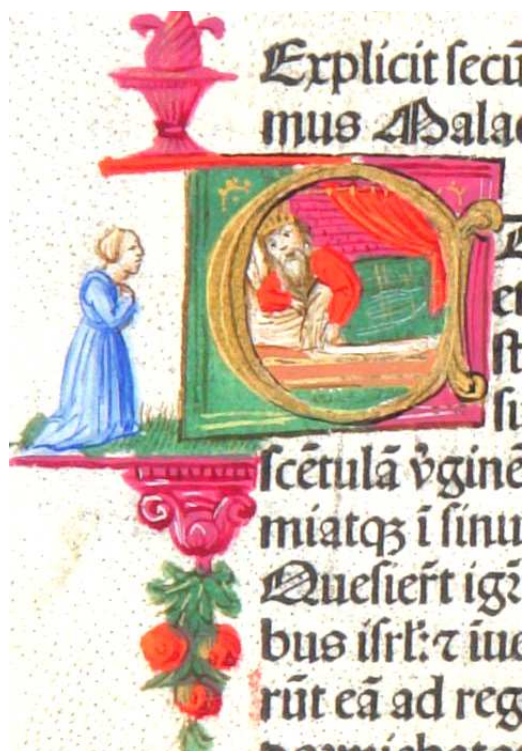 Explicit secū
mus Malac
E
st
scētulā v̓ginē
miatqꝫ ī sinu
Quesier̄t igr̄
bus isrl: ⁊ iue
rūt eā ad reg